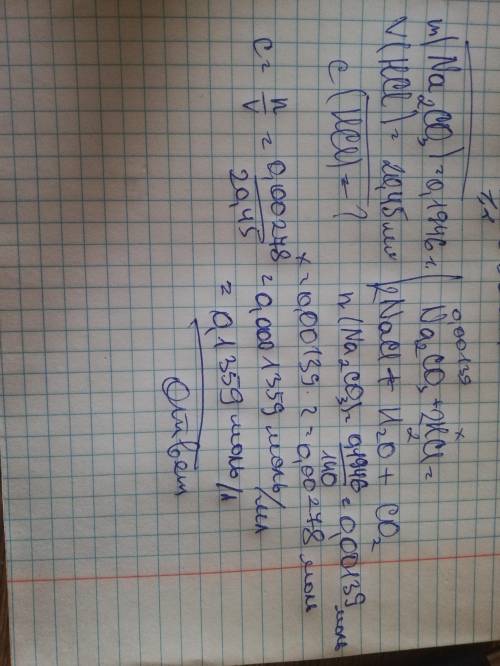 m(Na₂CO₃) = 0,1946 г.
V(HCl) = 20,45 мл
c(HCl) = ?
0,00139 x
Na₂CO₃ + 2HCl =
2
2NaCl + H₂O + CO₂
n(Na₂CO₃) = 0,1946/140 = 0,00139 моль
x = 0,00139 · 2 = 0,00278 моль
c = n/V = 0,00278/20,45 = 0,0001359 моль/мл
= 0,1359 моль/л
Ответ